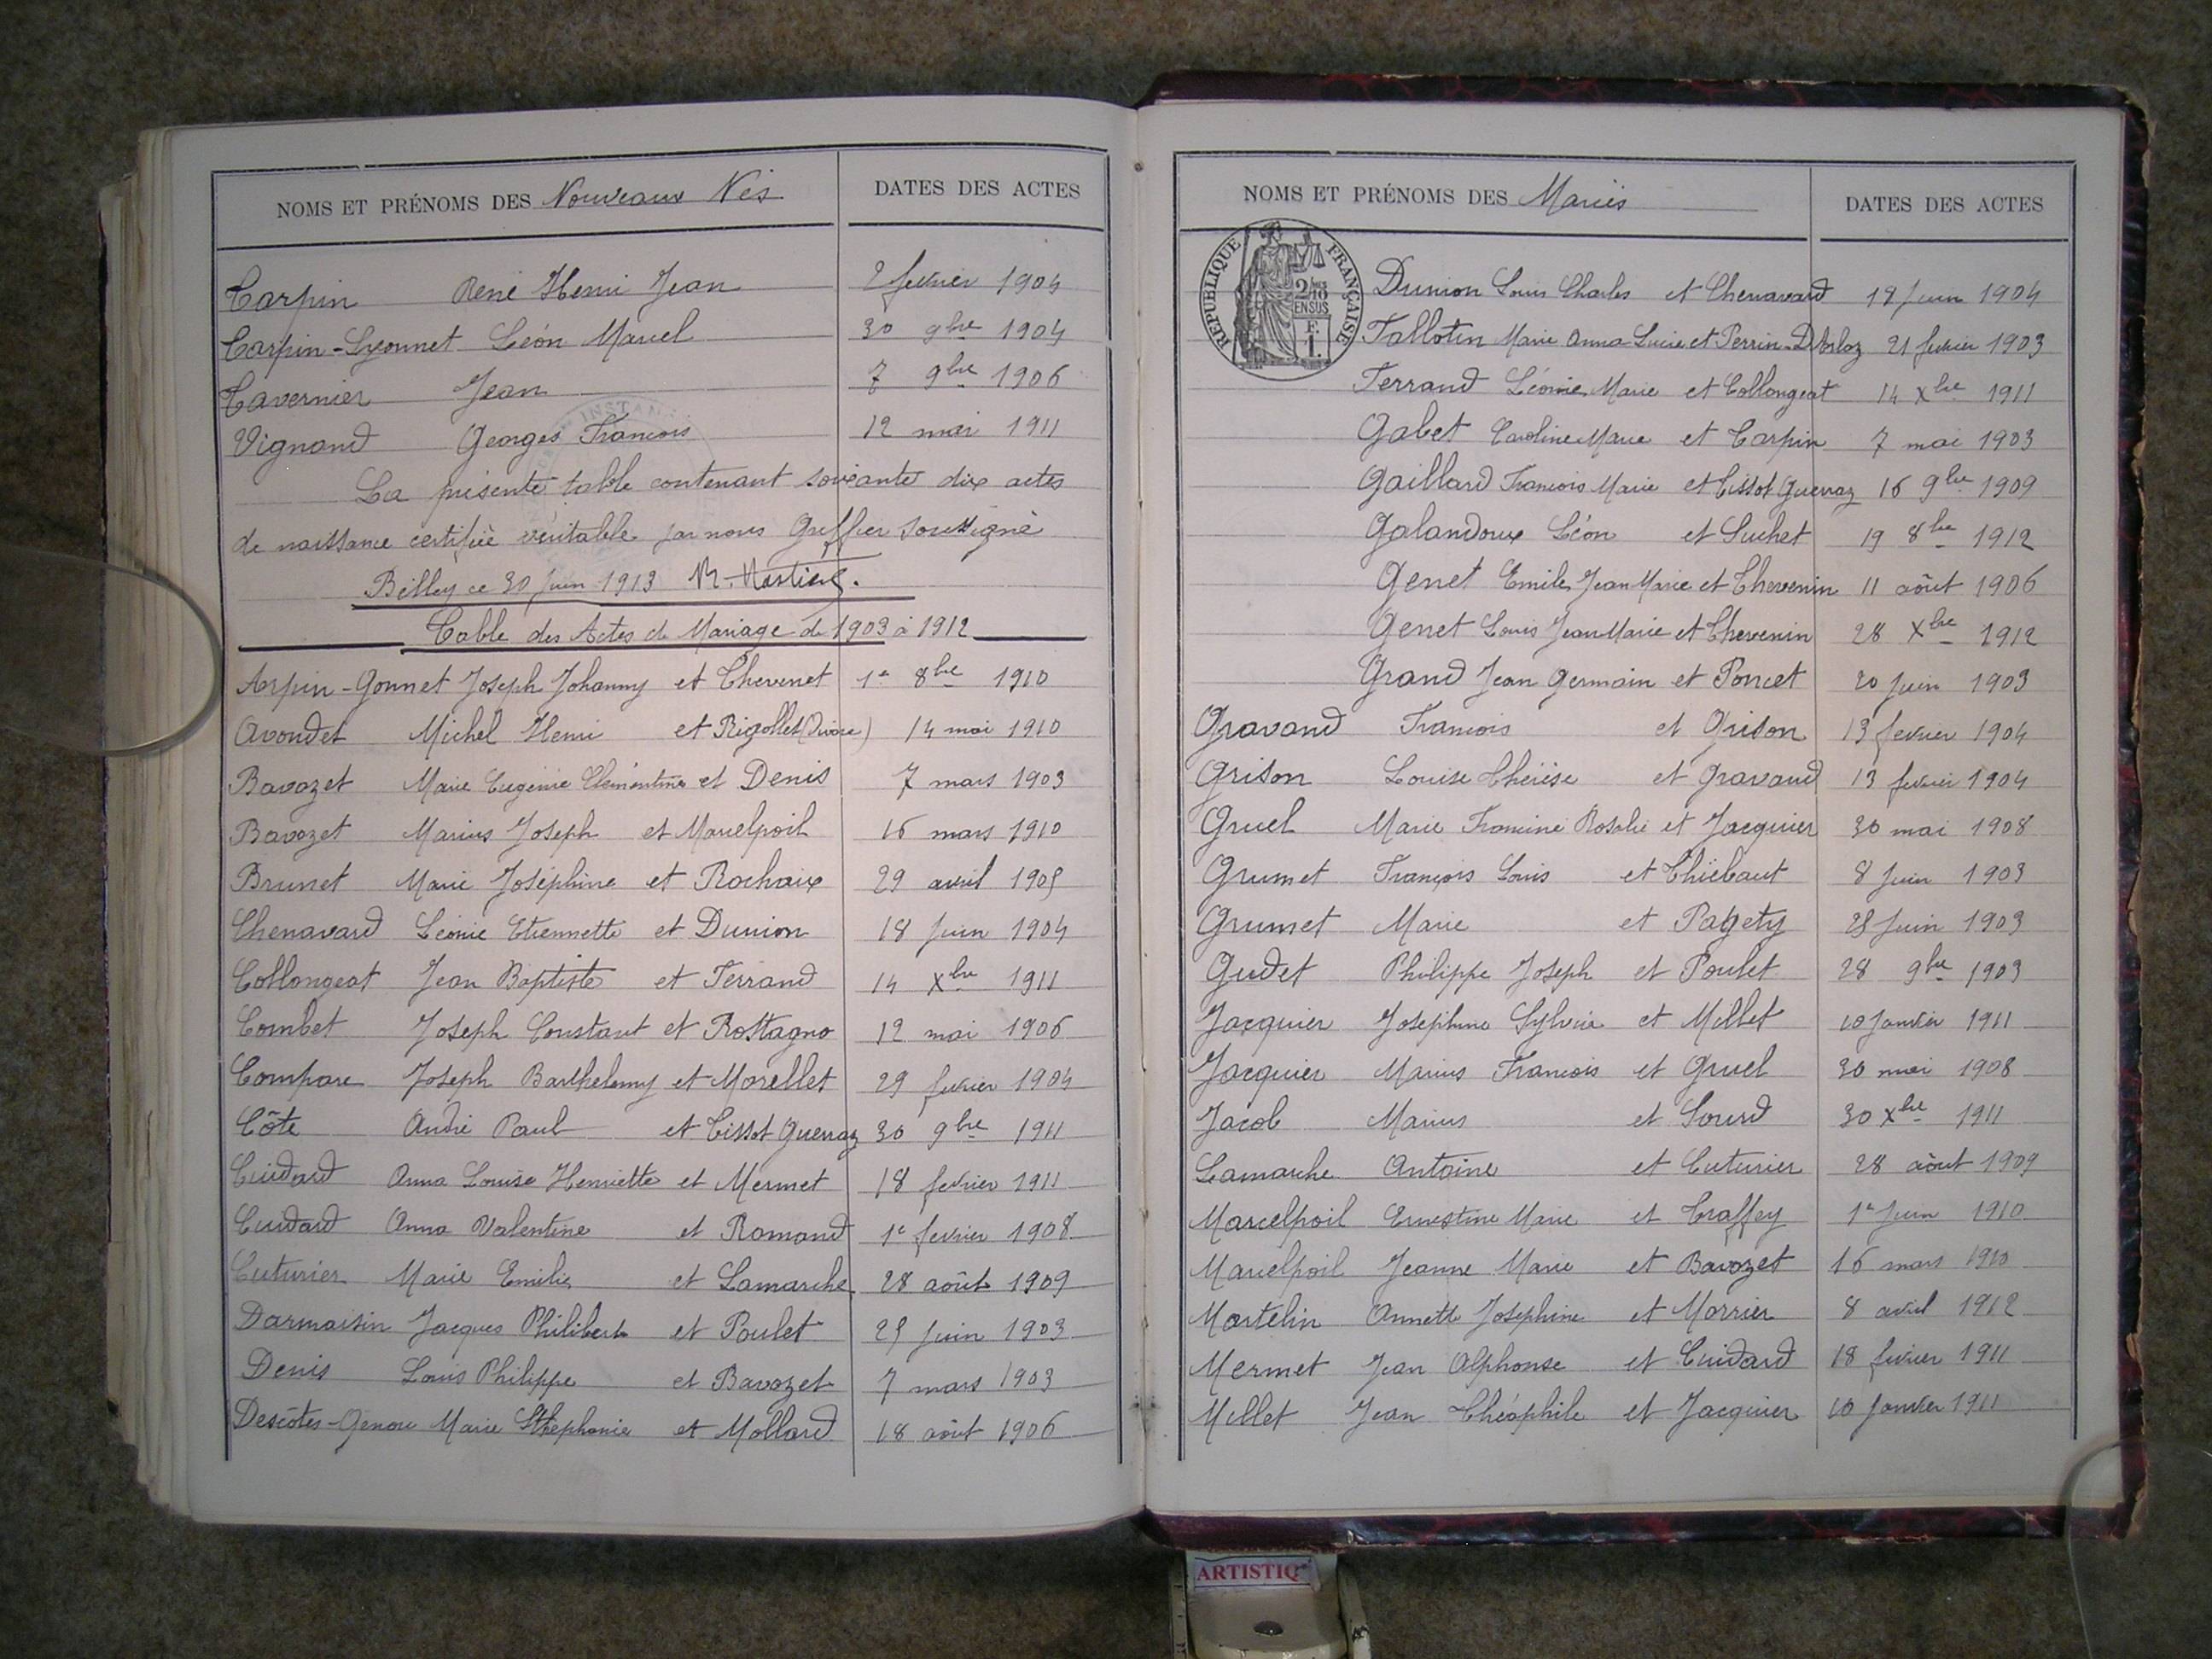 NOMS ET PRÉNOMS DES Nouveaux Nés DATES DES ACTES
Carpin René Henri Jean 2 fevrier 1904
Carpin-Lyonnet Léon Marcel 30 9bre 1904
Tavernier Jean 7 9bre 1906
Vignand Georges François 12 mai 1911
La présente table contenant soixante dix actes
de naissance certifiée véritable par nous Greffier soussigné
Belley ce 30 Juin 1913
Table des Actes de Mariage de 1903 à 1912
Arpin-Gonnet Joseph Johanny et Thevenet 1er 8bre 1910
Avondet Michel Henri et Rigollet (Divorce) 14 mai 1910
Bavozet Marie Eugénie Clémentine et Denis 7 mars 1903
Bavozet Marius Joseph et Marcelpoil 16 mars 1910
Brunet Marie Joséphine et Rochaix 29 avril 1905
Chenavard Léonie Etiennette et Dunion 18 Juin 1904
Collongeat Jean Baptiste et Ferrand 14 Xbre 1911
Combet Joseph Constant et Rostagno 12 mai 1906
Compare Joseph Barthelemy et Morellet 29 fevrier 1904
Côte André Paul et Tissot Guerraz 30 9bre 1911
Cuidard Anna Louise Henriette et Mermet 18 fevrier 1911
Cuidard Anna Valentine et Romand 1e fevrier 1908
Cuturier Marie Emilie et Lamarche 28 août 1909
Darmaisin Jacques Philibert et Poulet 25 Juin 1903
Denis Louis Philippe et Bavozet 7 mars 1903
Descôtes-Genou Marie Sthephanie et Mollard 18 août 1906
NOMS ET PRÉNOMS DES Mariés DATES DES ACTES
RÉPUBLIQUE FRANÇAISE
2/10 EN SUS
F. 1.
Dunion Louis Charles et Chenavard 18 Juin 1904
Fallotin Marie Anna Lucie et Perrin-D'Arloz 21 fevrier 1903
Ferrand Léonie Marie et Collongeat 14 Xbre 1911
Gabet Caroline Marie et Carpin 7 mai 1903
Gaillard François Marie et Tissot Guerraz 16 9bre 1909
Galandoux Léon et Suchet 19 8bre 1912
Genet Emile Jean Marie et Thevenin 11 août 1906
Genet Louis Jean Marie et Thevenin 28 Xbre 1912
Grand Jean Germain et Poncet 20 Juin 1903
Gravand François et Grison 13 fevrier 1904
Grison Louise Thérèse et Gravand 13 fevrier 1904
Gruel Marie Francine Rosalie et Jacquier 30 mai 1908
Grumet François Louis et Thiébaut 8 Juin 1903
Grumet Marie et Pagety 28 Juin 1903
Gudet Philippe Joseph et Poulet 28 9bre 1903
Jacquier Joséphine Sylvie et Millet 10 Janvier 1911
Jacquier Marius François et Gruel 30 mai 1908
Jacob Marius et Sourd 30 Xbre 1911
Lamarche Antoine et Cuturier 28 août 1909
Marcelpoil Ernestine Marie et Traffey 1e Juin 1910
Marcelpoil Jeanne Marie et Bavozet 16 mars 1910
Martelin Annette Joséphine et Morrier 8 avril 1912
Mermet Jean Alphonse et Cuidard 18 fevrier 1911
Millet Jean Théophile et Jacquier 10 Janvier 1911
ARTISTIQ